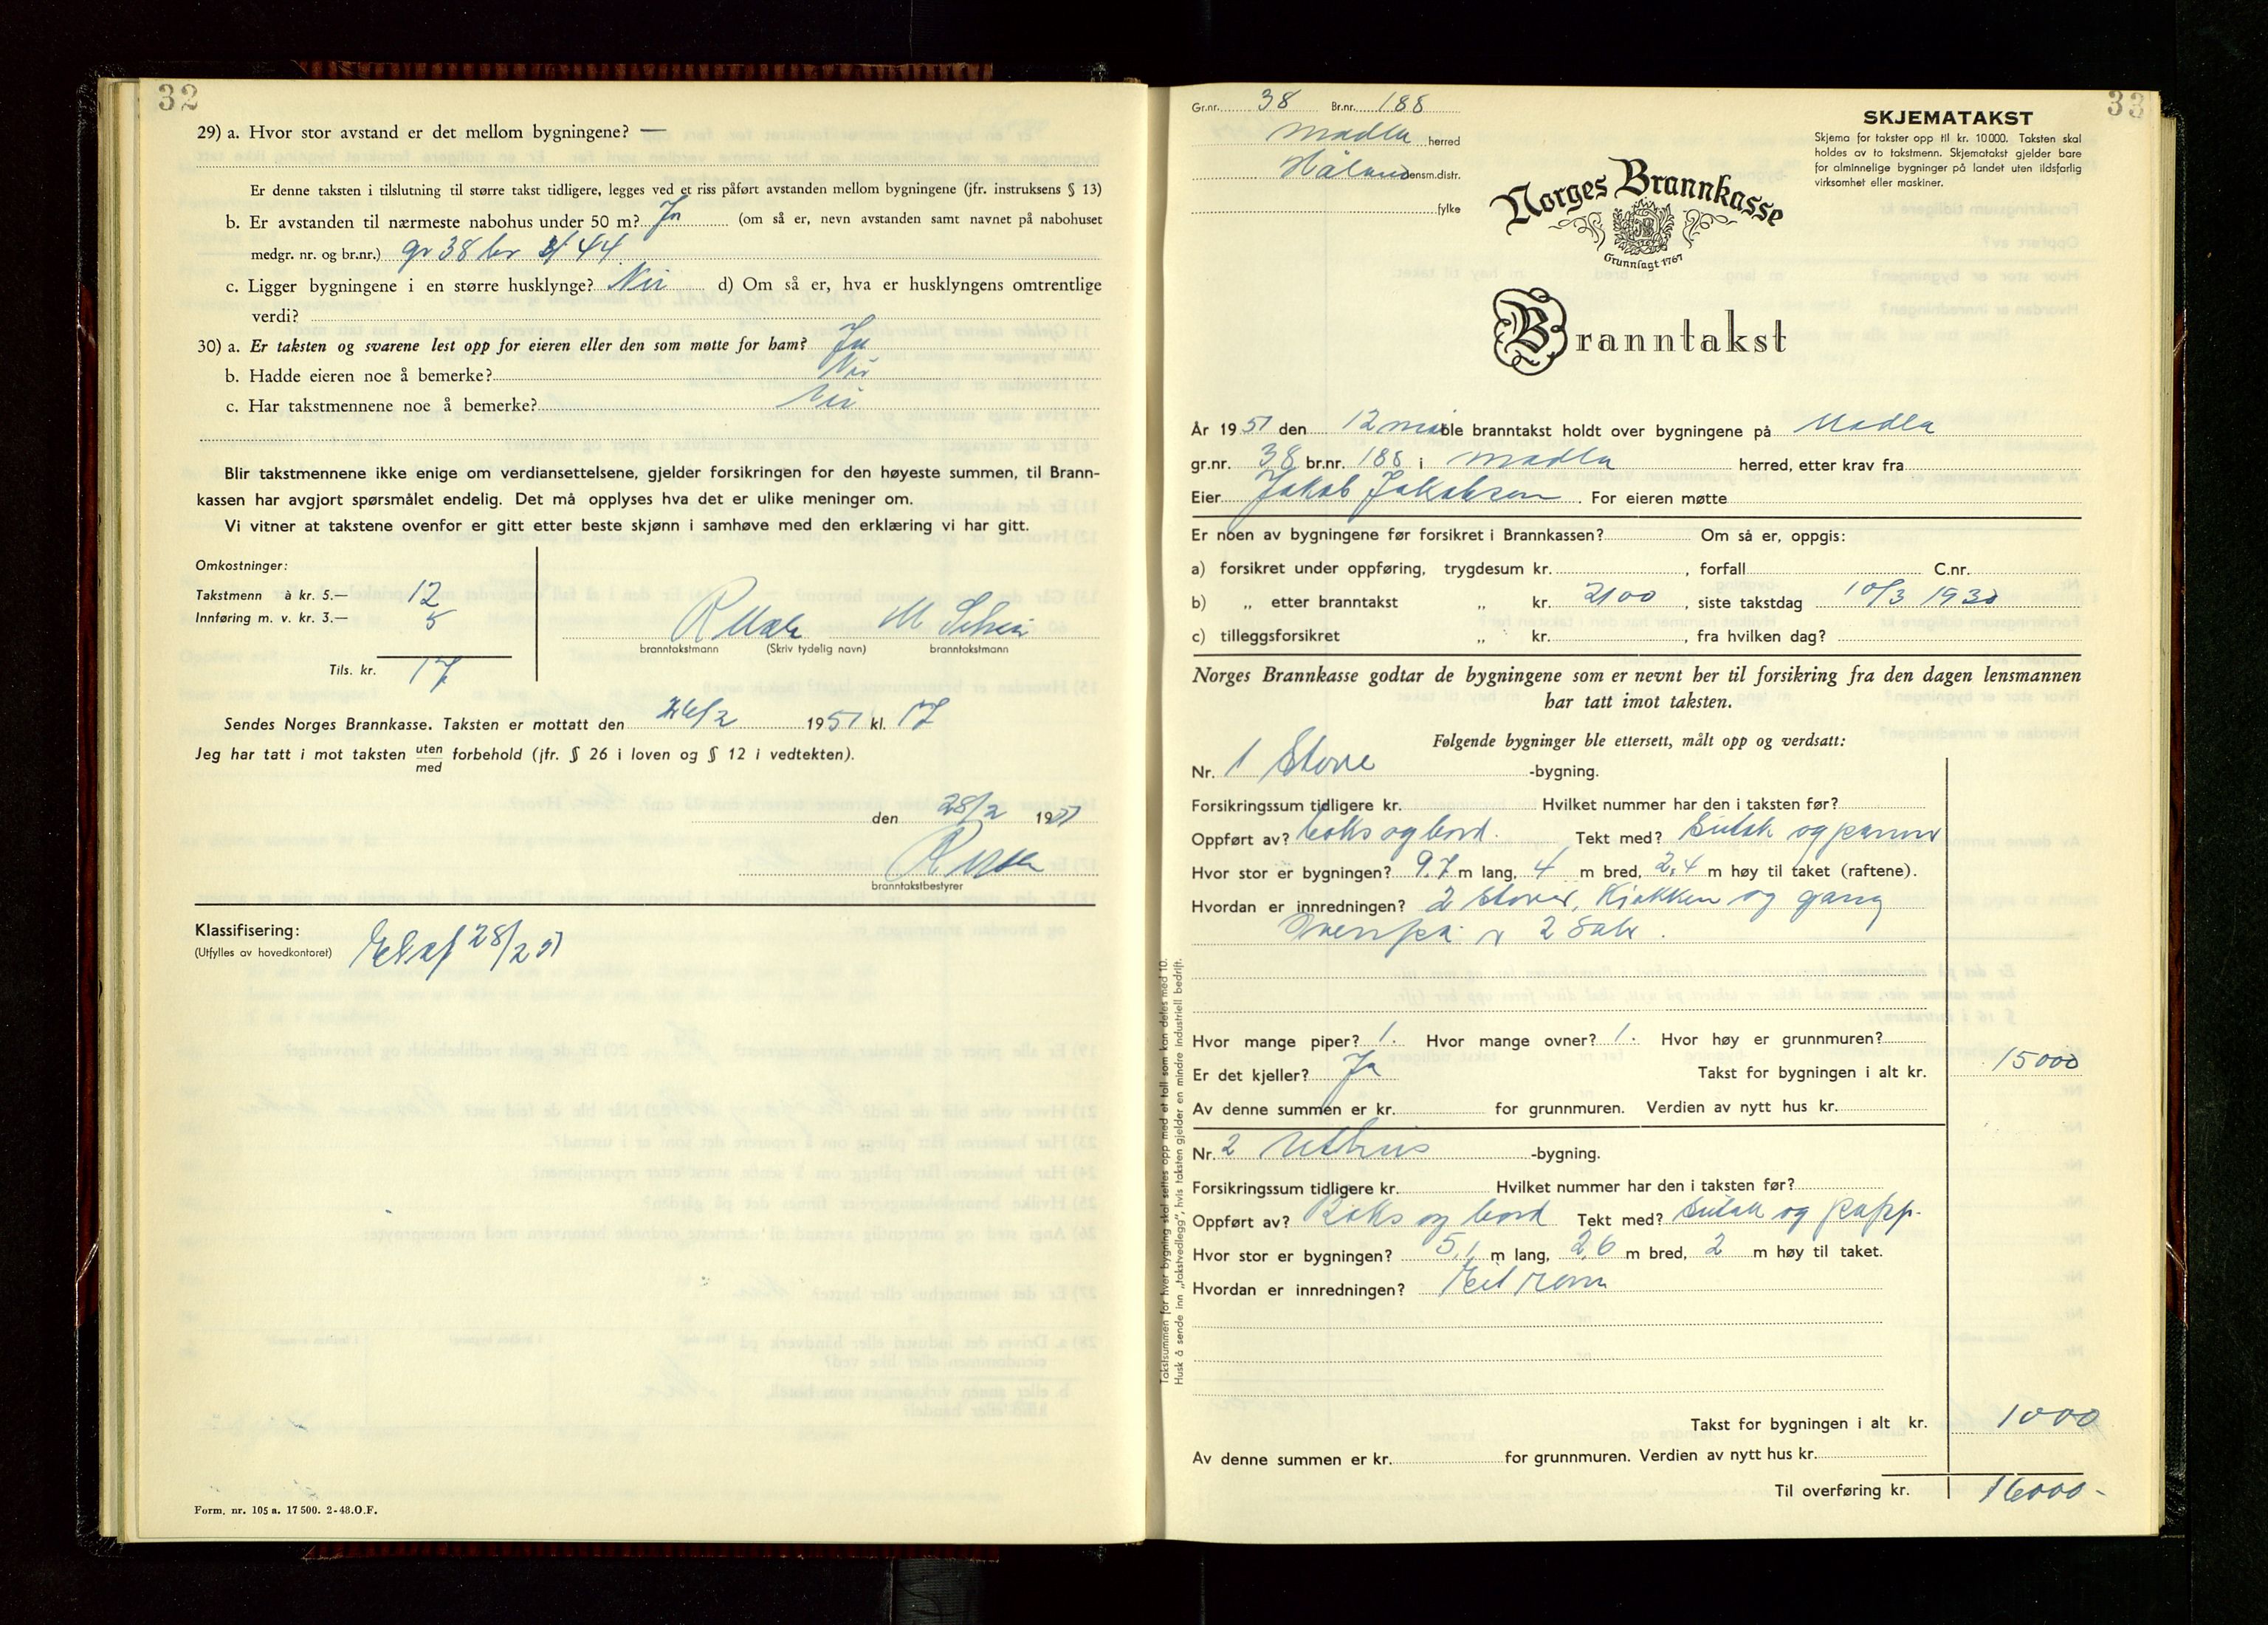 32
29) a. Hvor stor avstand er det mellom bygningene? —
Er denne taksten i tilslutning til større takst tidligere, legges ved et riss påført avstanden mellom bygningene (jfr. instruksens § 13)
b. Er avstanden til nærmeste nabohus under 50 m? Ja (om så er, nevn avstanden samt navnet på nabohuset
medgr. nr. og br.nr.) gr 38 br 44
c. Ligger bygningene i en større husklynge? Nei d) Om så er, hva er husklyngens omtrentlige
verdi?
30) a. Er taksten og svarene lest opp for eieren eller den som møtte for ham? Ja
b. Hadde eieren noe å bemerke? Nei
c. Har takstmennene noe å bemerke? Nei
Blir takstmennene ikke enige om verdiansettelsene, gjelder forsikringen for den høyeste summen, til Brann-
kassen har avgjort spørsmålet endelig. Det må opplyses hva det er ulike meninger om.
Vi vitner at takstene ovenfor er gitt etter beste skjønn i samhøve med den erklæring vi har gitt.
Omkostninger:
Takstmenn à kr. 5.— 12
Innføring m. v. kr. 3.— 5
Tils. kr. 17
branntakstmann (Skriv tydelig navn) branntakstmann
Sendes Norges Brannkasse. Taksten er mottatt den 26/2 1951 kl. 17
Jeg har tatt i mot taksten uten
med forbehold (jfr. § 26 i loven og § 12 i vedtekten).
den 28/2 1951
branntakstbestyrer
Klassifisering:
(Utfylles av hovedkontoret) 28/2 51
Form. nr. 105 a. 17 500. 2-48.O.F.
33
Gr.nr. 38 Br.nr. 188
Madla herred
Håland lensm.distr.
fylke
SKJEMATAKST
Skjema for takster opp til kr. 10 000. Taksten skal
holdes av to takstmenn. Skjematakst gjelder bare
for alminnelige bygninger på landet uten ildsfarlig
virksomhet eller maskiner.
Norges Brannkasse
Grunnlagt 1767
Branntakst
År 1951 den 12 mai ble branntakst holdt over bygningene på Madla
gr.nr. 38 br.nr. 188 i Madla herred, etter krav fra
Eier Jakob Jakobsen . For eieren møtte
Er noen av bygningene før forsikret i Brannkassen? Om så er, oppgis:
a) forsikret under oppføring, trygdesum kr. , forfall C.nr.
b) „ etter branntakst „ kr. 2100 , siste takstdag 10/3 1930
c) tilleggsforsikret „ kr. , fra hvilken dag?
Norges Brannkasse godtar de bygningene som er nevnt her til forsikring fra den dagen lensmannen
har tatt imot taksten.
Følgende bygninger ble ettersett, målt opp og verdsatt:
Nr. 1 Stove -bygning.
Forsikringssum tidligere kr. Hvilket nummer har den i taksten før?
Oppført av? boks og bord. Tekt med? Sutak og panner
Hvor stor er bygningen? 9.7 m lang, 4 m bred, 2,4 m høy til taket (raftene).
Hvordan er innredningen? 2 stover, Kjøkken og gang
Ovenpå 2 Sale .
Hvor mange piper? 1. Hvor mange ovner? 1. Hvor høy er grunnmuren?
Er det kjeller? Ja Takst for bygningen i alt kr. 15000
Av denne summen er kr. for grunnmuren. Verdien av nytt hus kr.
Nr. 2 Uthus -bygning.
Forsikringssum tidligere kr. Hvilket nummer har den i taksten før?
Oppført av? Boks og bord Tekt med? Sutak og papp.
Hvor stor er bygningen? 5,1 m lang, 2,6 m bred, 2 m høy til taket.
Hvordan er innredningen? Eit rom
Takst for bygningen i alt kr. 1000
Av denne summen er kr. for grunnmuren. Verdien av nytt hus kr.
Til overføring kr. 16000-
Takstsummen for hver bygning skal settes opp med et tall som kan deles med 10.
Husk å sende inn „takstvedlegg”, hvis taksten gjelder en mindre industriell bedrift.